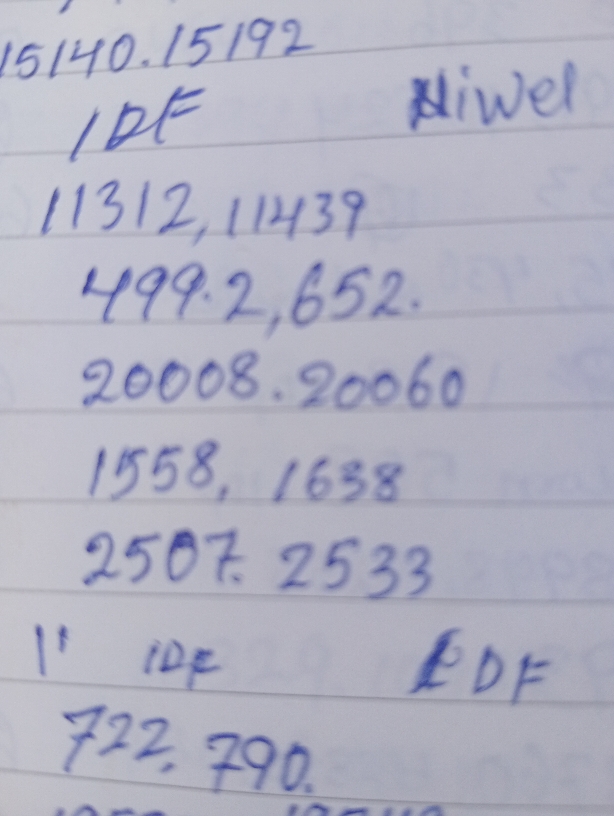 15140.15192
IDF Niwel
11312, 11439
499.2, 652.
20008.20060
1558, 1638
2507. 2533
11 IDF EDF
722. 790.